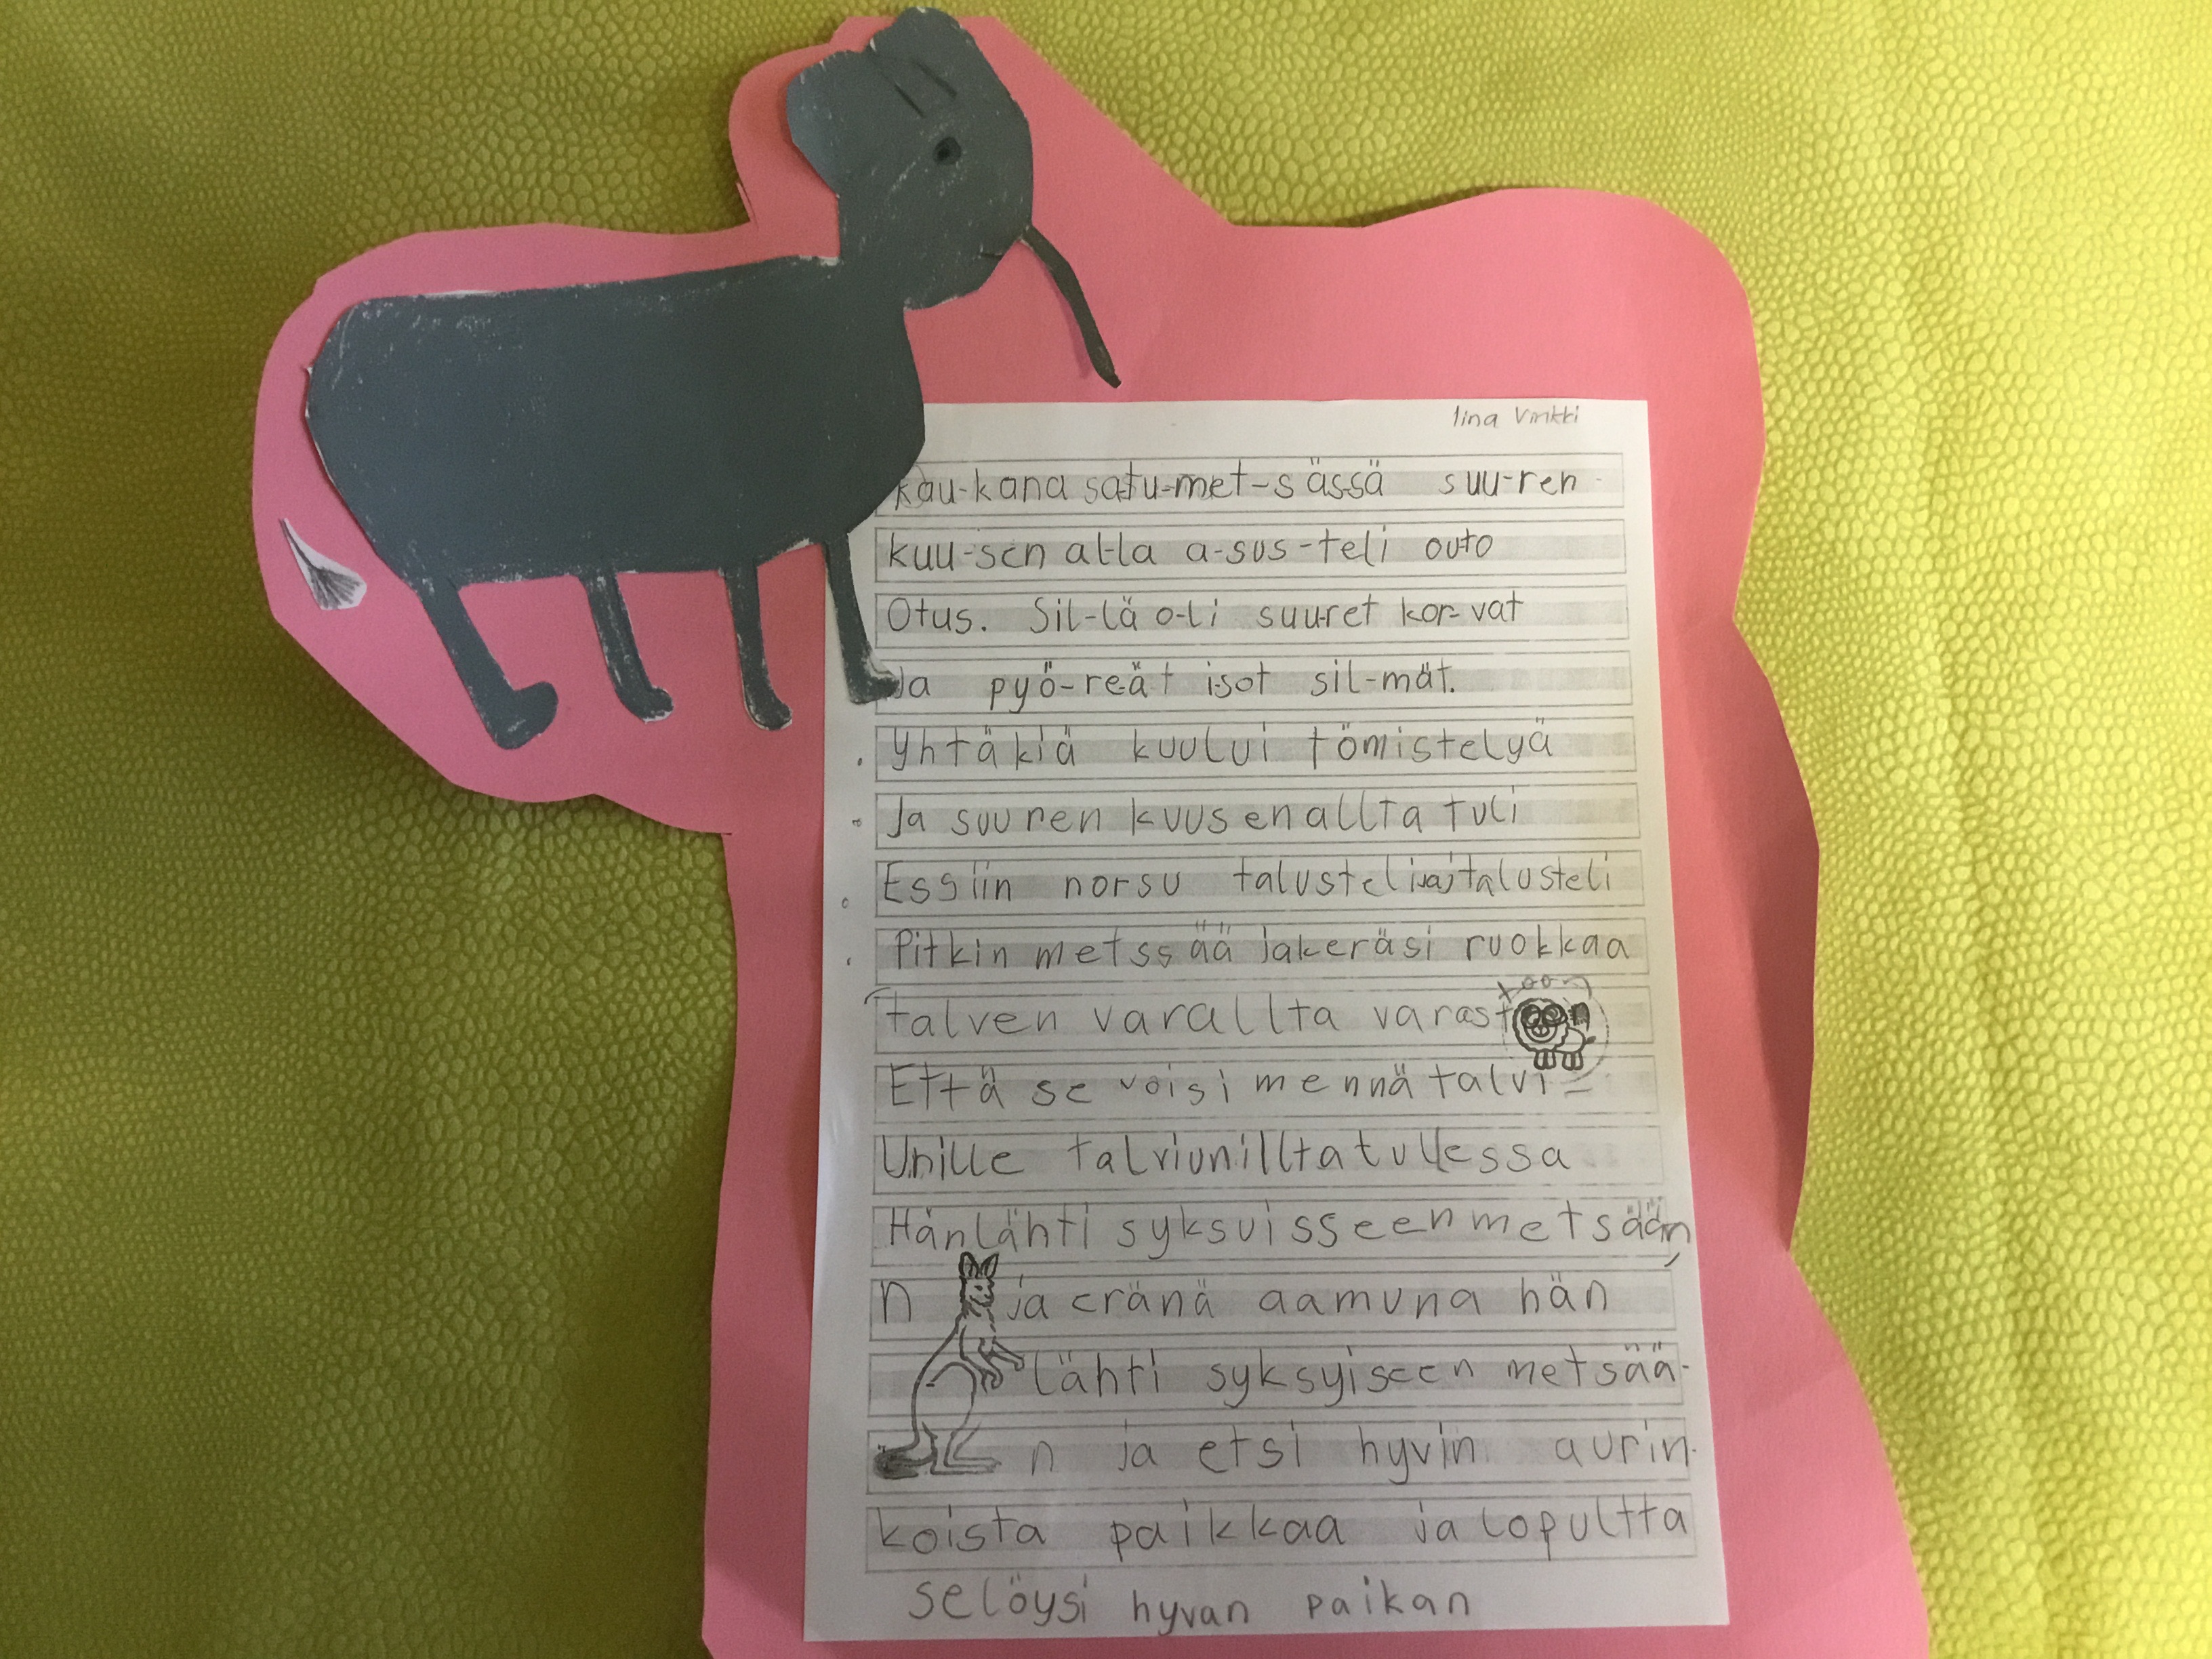 Iina Vinkki
kau-kana satu-met-sässä suu-ren
kuu-sen al-la a-sus-teli outo
Otus. Sil-lä o-li suu-ret kor-vat
Ja pyö-re-ät i-sot sil-mät.
Yhtäkiä kuului tömistelyä
Ja suuren kuusen allta tuli
Essiin norsu talusteli ja talusteli
Pitkin metssää ja keräsi ruokkaa
talven varallta varast
toon
Että se voisi mennä talvi=
Unille talviunillta tullessa
Hän lähti syksuisseen metsään,
n ja eränä aamuna hän
lähti syksyiseen metsää-
n ja etsi hyvin aurin-
koista paikkaa ja lopultta
se löysi hyvan paikan